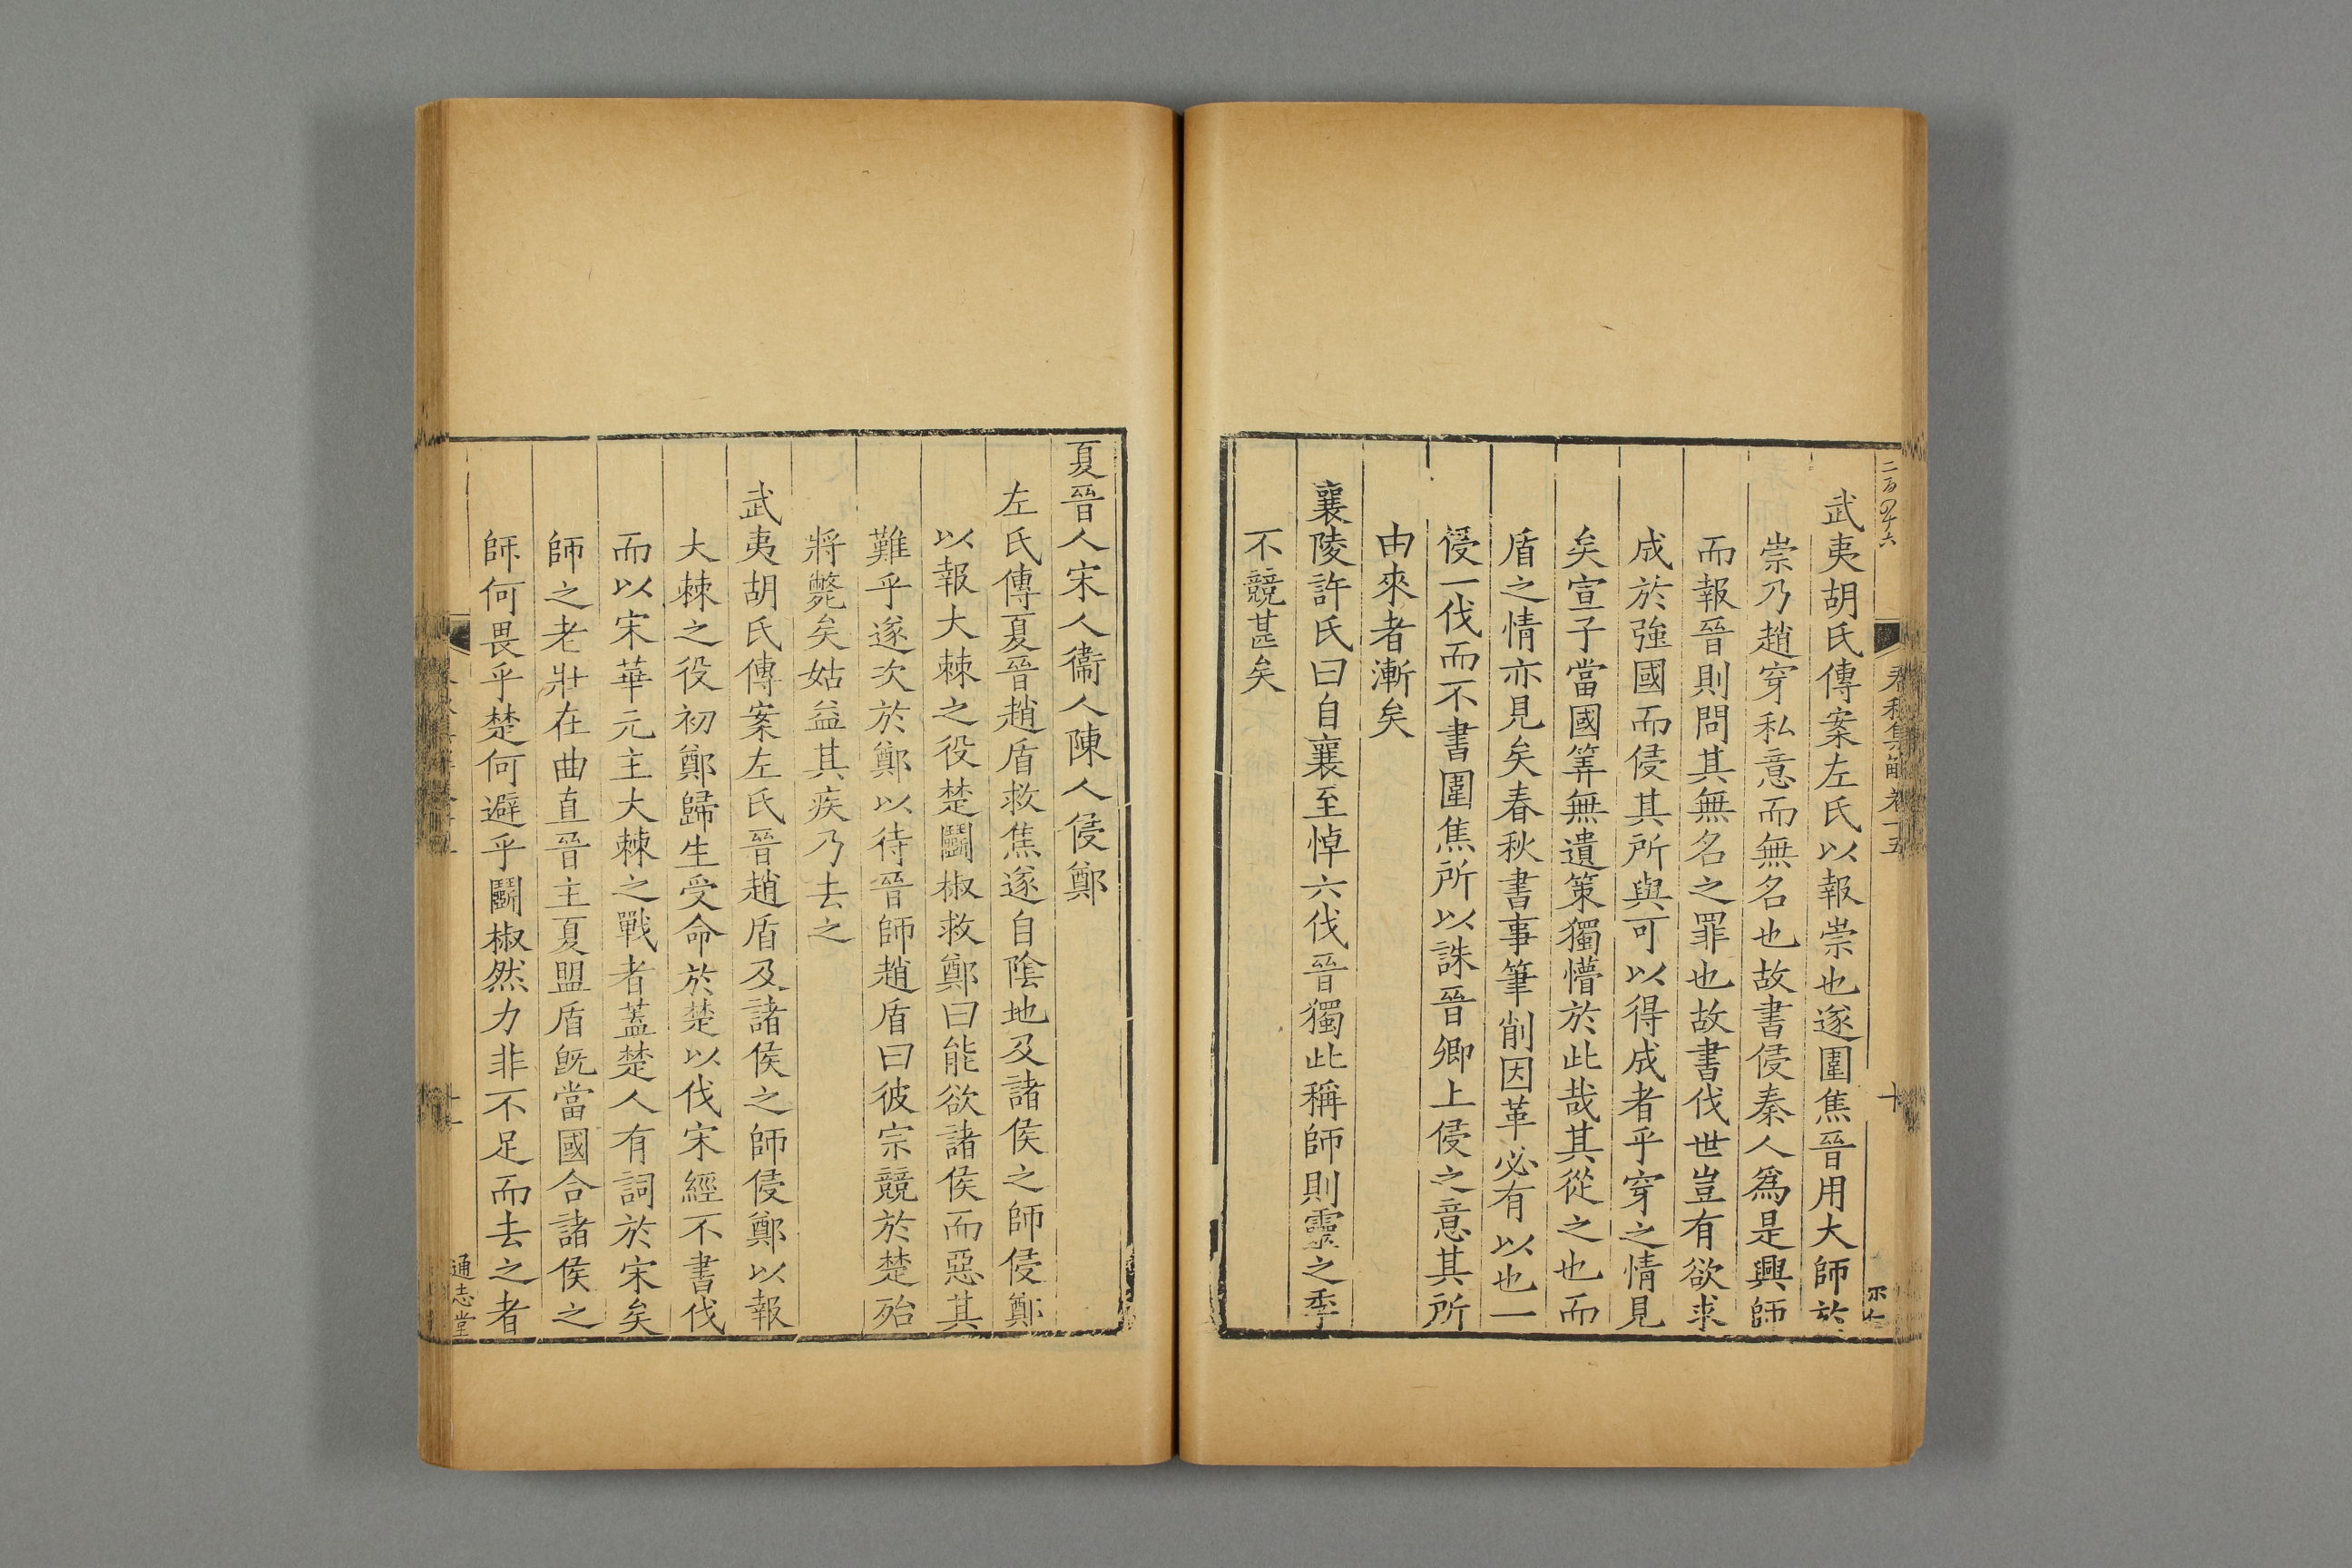 二百四十六
春秋集解卷十五
十
武夷胡氏傳案左氏以報崇也遂圍焦晉用大師於
崇乃趙穿私意而無名也故書侵秦人爲是興師
而報晉則問其無名之罪也故書伐世豈有欲求
成於強國而侵其所與可以得成者乎穿之情見
矣宣子當國筭無遺策獨懵於此哉其從之也而
盾之情亦見矣春秋書事筆削因革必有以也一
侵一伐而不書圍焦所以誅晉卿上侵之意其所
由來者漸矣
襄陵許氏曰自襄至悼六伐晉獨此稱師則靈之季
不競甚矣
夏晉人宋人衞人陳人侵鄭
左氏傳夏晉趙盾救焦遂自陰地及諸侯之師侵鄭
以報大棘之役楚鬭椒救鄭曰能欲諸侯而惡其
難乎遂次於鄭以待晉師趙盾曰彼宗競於楚殆
將斃矣姑益其疾乃去之
武夷胡氏傳案左氏晉趙盾及諸侯之師侵鄭以報
大棘之役初鄭歸生受命於楚以伐宋經不書伐
而以宋華元主大棘之戰者蓋楚人有詞於宋矣
師之老壯在曲直晉主夏盟盾旣當國合諸侯之
師何畏乎楚何避乎鬭椒然力非不足而去之者
十一
通志堂